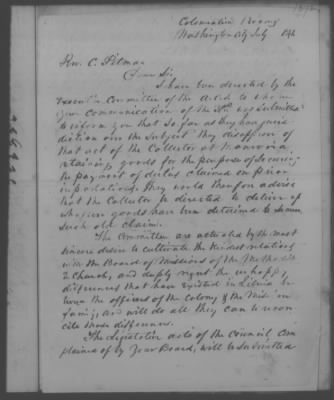 Colonization Rooms
Washington City July
Rev. C. Pitman
Dear Sir
I have been directed by the
Executive Committee of the to whom
your communication of the was submitted
to inform you that so far as they have juris
diction over the subject they disapprove of
that act of the Collector at Monrovia,
retaining goods for the purpose of securing
the payment of duties claimed on prior
importations. They would therefore advise
that the Collector be directed to deliver up
whatever goods have been detained to secure
such old claim.
The Committee are actuated by the most
sincere desire to cultivate the kindest relations
with the Board of Missions of the Methodist
E Church, and deeply regret the unhappy
differences that have existed in Liberia be
tween the officers of the Colony & the Mission
family, and will do all they can to recon
cile those differences.
The Legislative acts of the council, com
plained of by your Board, will be submitted